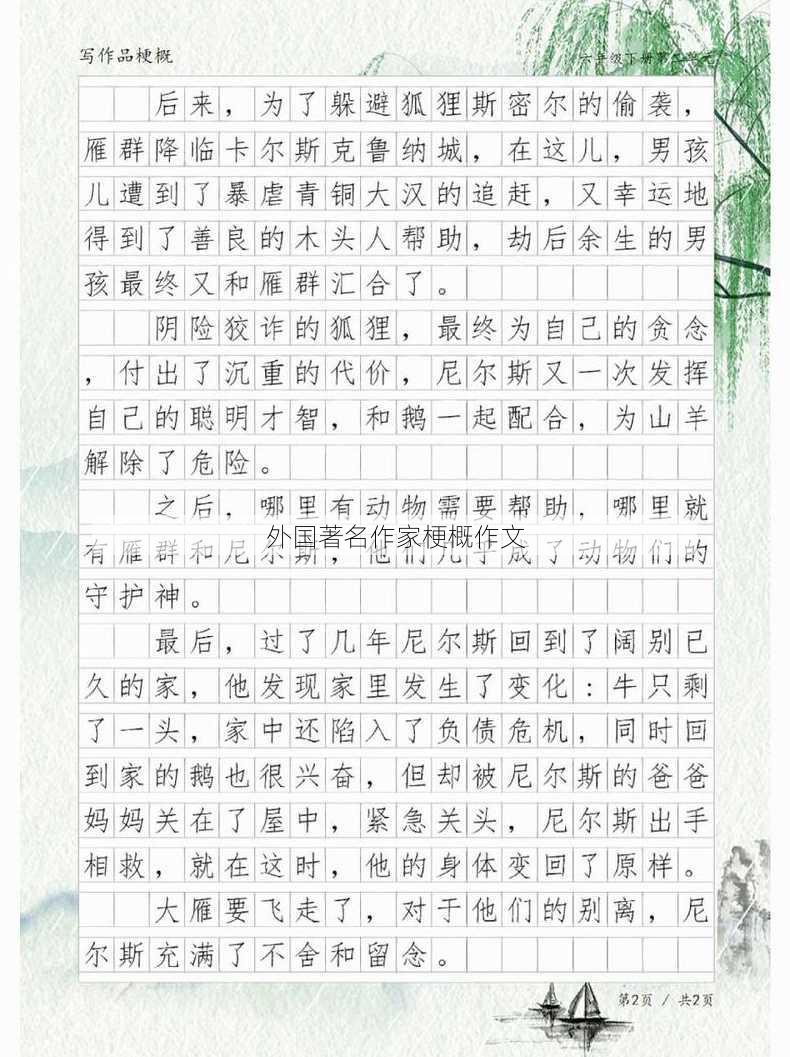 写作品梗概
六年级下册第二单元
后来，为了躲避狐狸斯密尔的偷袭，
雁群降临卡尔斯克鲁纳城，在这儿，男孩
儿遭到了暴虐青铜大汉的追赶，又幸运地
得到了善良的木头人帮助，劫后余生的男
孩最终又和雁群汇合了。
阴险狡诈的狐狸，最终为自己的贪念
，付出了沉重的代价，尼尔斯又一次发挥
自己的聪明才智，和鹅一起配合，为山羊
解除了危险。
之后，哪里有动物需要帮助，哪里就
有雁群和尼尔斯，他们几乎成了动物们的
外国著名作家梗概作文
守护神。
最后，过了几年尼尔斯回到了阔别已
久的家，他发现家里发生了变化：牛只剩
了一头，家中还陷入了负债危机，同时回
到家的鹅也很兴奋，但却被尼尔斯的爸爸
妈妈关在了屋中，紧急关头，尼尔斯出手
相救，就在这时，他的身体变回了原样。
大雁要飞走了，对于他们的别离，尼
尔斯充满了不舍和留念。
第2页 / 共2页